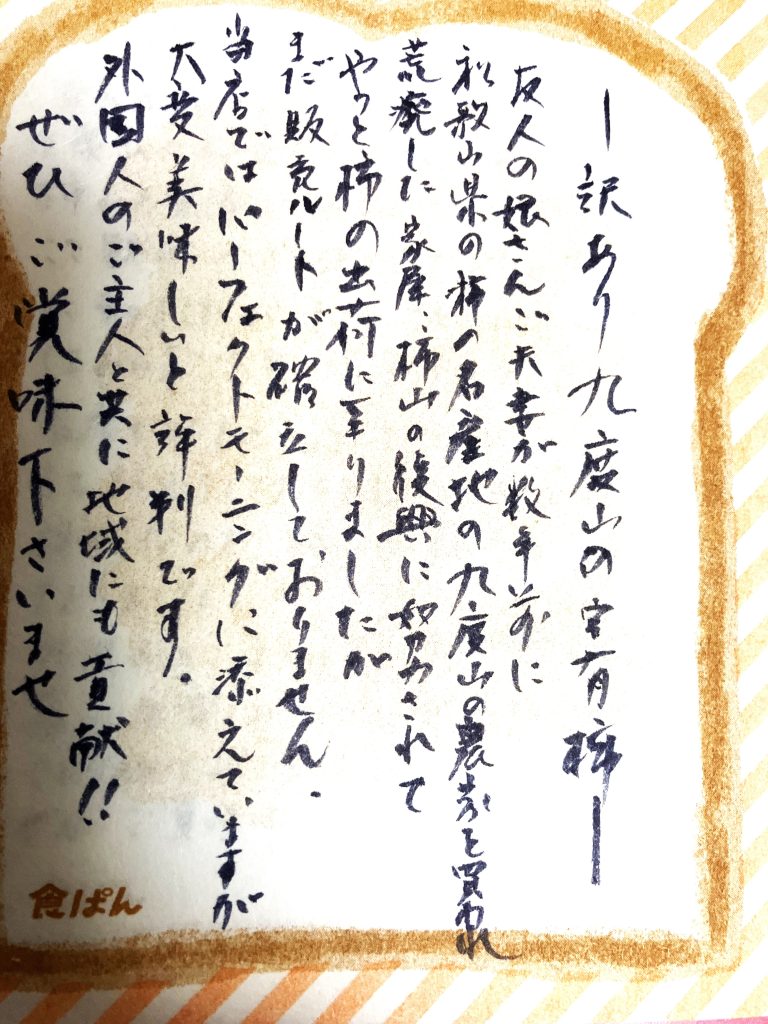 ー訳あり九度山の富有柿ー
友人の娘さんご夫妻が数年前に
和歌山県の柿の名産地の九度山の農家を買われ
荒廃した家屋、柿山の復興に努力されて
やっと柿の出荷に至りましたが
まだ販売ルートが確立しておりません.
当店ではパーフェクトモーニングに添えていますが
大変美味しいと評判です.
外国人のご主人と共に地域にも貢献!!
ぜひご賞味下さいませ
食ぱん